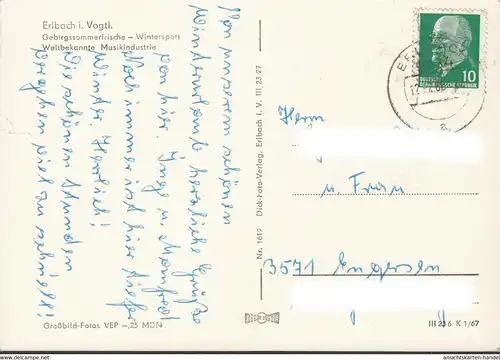 Erlbach i. Vogtl.
Gebirgssommerfrische – Wintersport
Weltbekannte Musikindustrie
Von unserm schönen
Winterurlaub herzliche Grüße
von hier. Inge u. Manfred
Noch immer ist hier tiefer
Winter. Herrlich!
Die schönen Stunden
vergehen viel zu schnell!
Großbild-Fotos VEP –,25 MDN
Nr. 1619 Dick-Foto-Verlag, Erlbach i. V. III
27
DEUTSCHE
DEMOKRATISCHE REPUBLIK
10
Herrn
u. Frau
3571 Engersen
III 23 6 K 1/67